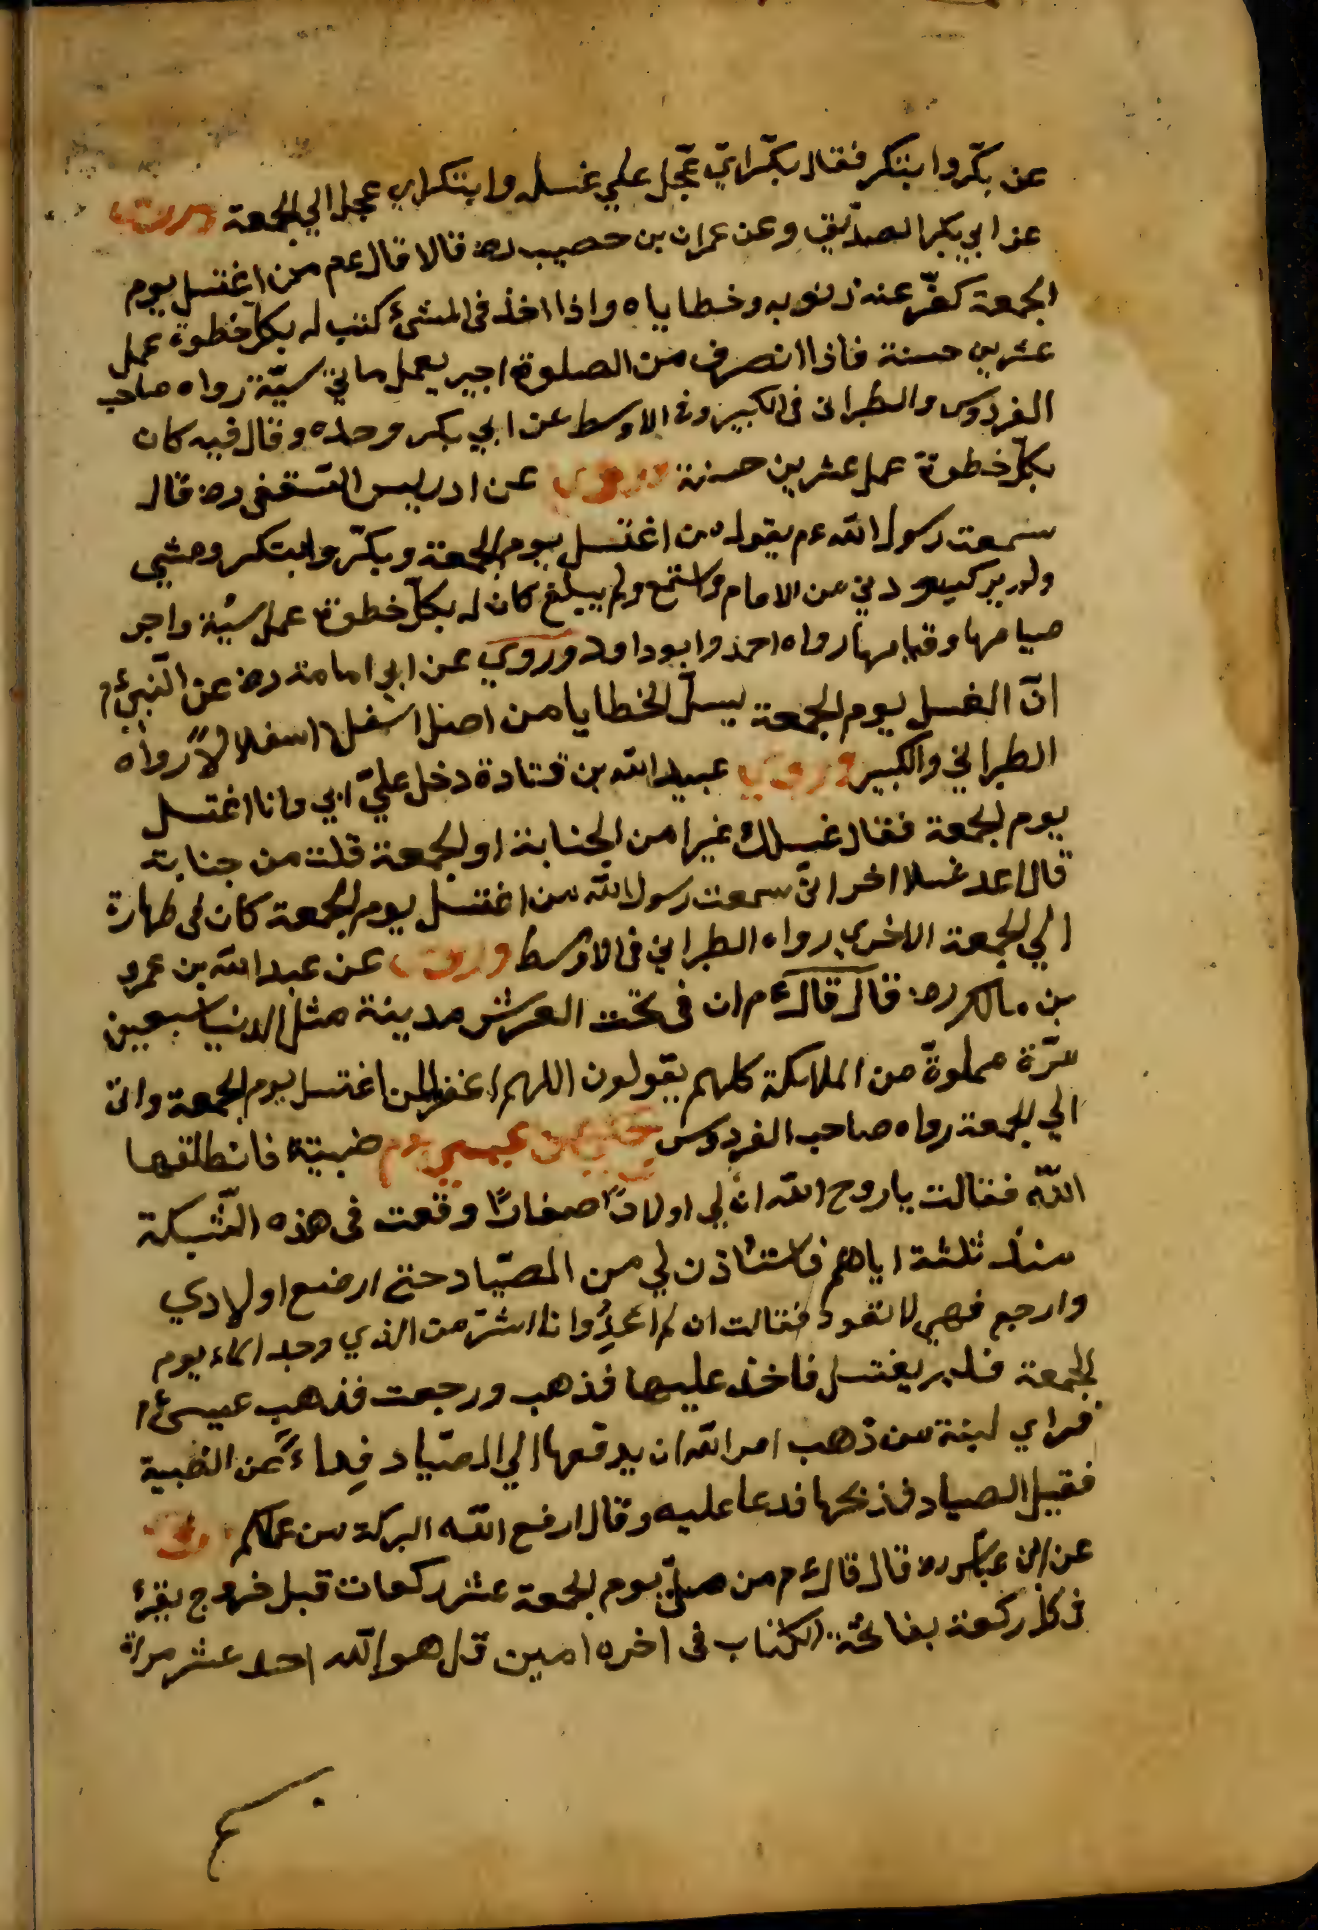 عن بكّر وابتكر فقال بكّر ايّ عجّل علي غسله وابتكر اي عجل الي الجمعة وروي
عن ابي بكر الصدّيق وعن عمران بن حصيب رض قالا قال عم من اغتسل يوم
الجمعة كفّر عنه ذنوبه وخطاياه واذا اخذ في المشئ كتب له بكلّ خطوة عمل
عشرين حسنة فاذا انصرف من الصلوة اجير بعمل مائتي سنة رواه صاحب
الفردوس والطبراني في الكبير وفي الاوسط عن ابي بكر وحده وقال فيه كان
بكلّ خطوة عمل عشرين حسنة وروي عن ادريس الثقفى رض قال
سمعت رسول الله عم يقول من اغتسل يوم الجمعة وبكّر وابتكر ومشي
ولم يركب ودني من الامام واستمع ولم يبلغ كان له بكلّ خطوة عمل سنة واجر
صيامها وقيامها رواه احمد وابو داود وروي عن ابي امامة رض عن النّبيّ م
انّ الغسل يوم الجمعة ليسلّ الخطايا من اصل رواه
الطبراني والكبير وروي عبيد الله بن قتادة دخل عليّ ابي وانا اغتسل
يوم الجمعة فقال غسلك غيرا من الجنابة او لجمعة قلت من جنابة
قال اعد غسلا اخر انّي سمعت رسول الله من اغتسل يوم الجمعة كان في طهارة
الي الجمعة الاخري رواه الطبراني في الاوسط وروي عن عبد الله بن عمرو
بن مالك رض قال قال ءم ان في تحت العرش مدينة مثل الدنيا سبعين
مرّة مملوّة من الملائكة كلهم يقولون اللهم اغفر لمن اغتسل يوم الجمعة واتي
الي الجمعة رواه صاحب الفردوس حكي عن عيسي عم ضبية فانطلقها
اللّه فقالت يا روح الله ان لي اولادًا صغارًا وقعت في هذه الشّبكة
منذ ثلثة ايام فاستئذن لي من الصيّاد حتي ارضع اولادي
وارجع فهي لا تعود فقالت ان لم اعد وانا اشرّ من الذي وجد الماء يوم
الجمعة فلم يغتسل فاخذ عليها فذهب ورجعت فذهب عيسى ءم
فراي لبنة من ذهب امر الله ان يدفعها الي الصيّاد فداءً عن الظبية
فقيل الصياد فذبحها فدعا عليه وقال ارفع الله البركة من عملكم وروي
عن ابن عباس رض قال قال ءم من صلّي يوم الجمعة عشر ركعات قبل خروج يقرء
في كل ركعة بفاتحة الكتاب في اخره امين قل هو الله احد عشر مراة